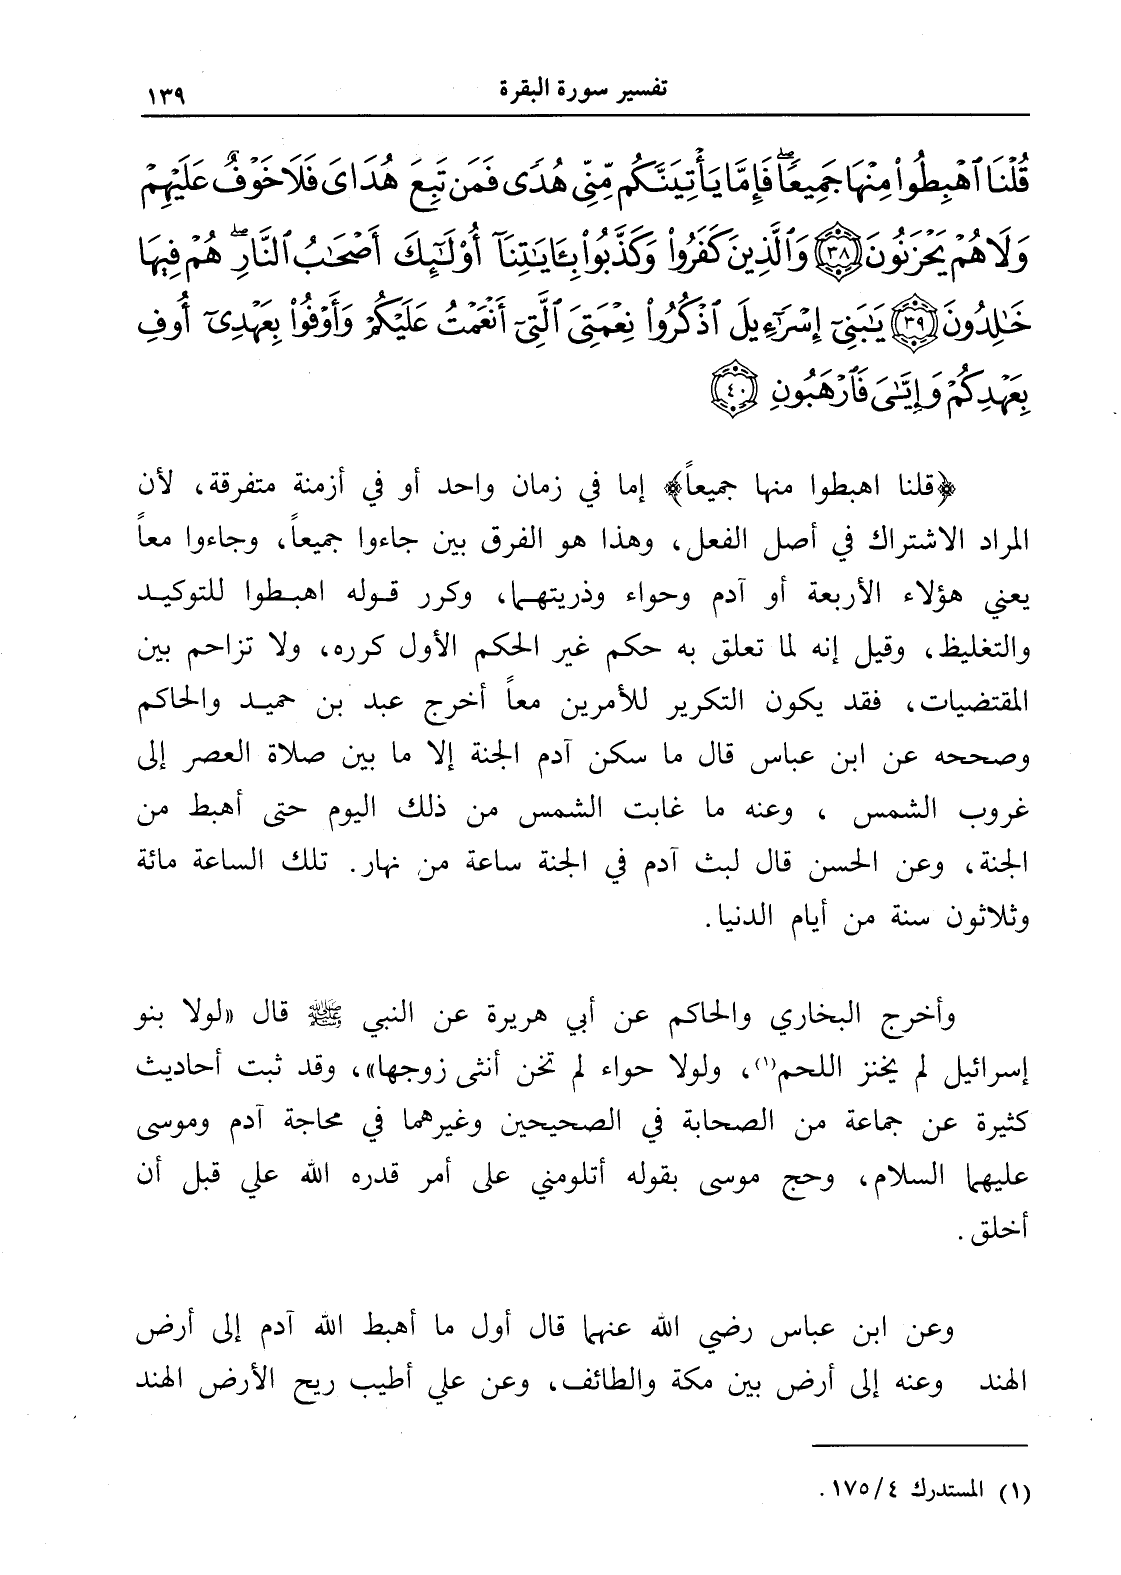 تفسير سورة البقرة ١٣٩
قُلْنَا ٱهْبِطُوا۟ مِنْهَا جَمِيعًۭا ۖ فَإِمَّا يَأْتِيَنَّكُم مِّنِّى هُدًۭى فَمَن تَبِعَ هُدَاىَ فَلَا خَوْفٌ عَلَيْهِمْ
وَلَا هُمْ يَحْزَنُونَ ٣٨ وَٱلَّذِينَ كَفَرُوا۟ وَكَذَّبُوا۟ بِـَٔايَٰتِنَآ أُو۟لَٰٓئِكَ أَصْحَٰبُ ٱلنَّارِ ۖ هُمْ فِيهَا
خَٰلِدُونَ ٣٩ يَٰبَنِىٓ إِسْرَٰٓءِيلَ ٱذْكُرُوا۟ نِعْمَتِىَ ٱلَّتِىٓ أَنْعَمْتُ عَلَيْكُمْ وَأَوْفُوا۟ بِعَهْدِىٓ أُوفِ
بِعَهْدِكُمْ وَإِيَّٰىَ فَٱرْهَبُونِ ٤٠
﴿قلنا اهبطوا منها جميعاً﴾ إما في زمان واحد أو في أزمنة متفرقة، لأن
المراد الاشتراك في أصل الفعل، وهذا هو الفرق بين جاءوا جميعاً، وجاءوا معاً
يعني هؤلاء الأربعة أو آدم وحواء وذريتهما، وكرر قوله اهبطوا للتوكيد
والتغليظ، وقيل إنه لما تعلق به حكم غير الحكم الأول كرره، ولا تزاحم بين
المقتضيات، فقد يكون التكرير للأمرين معاً أخرج عبد بن حميد والحاكم
وصححه عن ابن عباس قال ما سكن آدم الجنة إلا ما بين صلاة العصر إلى
غروب الشمس ، وعنه ما غابت الشمس من ذلك اليوم حتى أهبط من
الجنة، وعن الحسن قال لبث آدم في الجنة ساعة من نهار. تلك الساعة مائة
وثلاثون سنة من أيام الدنيا.
وأخرج البخاري والحاكم عن أبي هريرة عن النبي ﷺ قال «لولا بنو
إسرائيل لم يخنز اللحم(١)، ولولا حواء لم تخن أنثى زوجها»، وقد ثبت أحاديث
كثيرة عن جماعة من الصحابة في الصحيحين وغيرهما في محاجة آدم وموسى
عليهما السلام، وحج موسى بقوله أتلومني على أمر قدره الله علي قبل أن
أخلق.
وعن ابن عباس رضي الله عنهما قال أول ما أهبط الله آدم إلى أرض
الهند وعنه إلى أرض بين مكة والطائف، وعن علي أطيب ريح الأرض الهند
(١) المستدرك ٤/١٧٥.